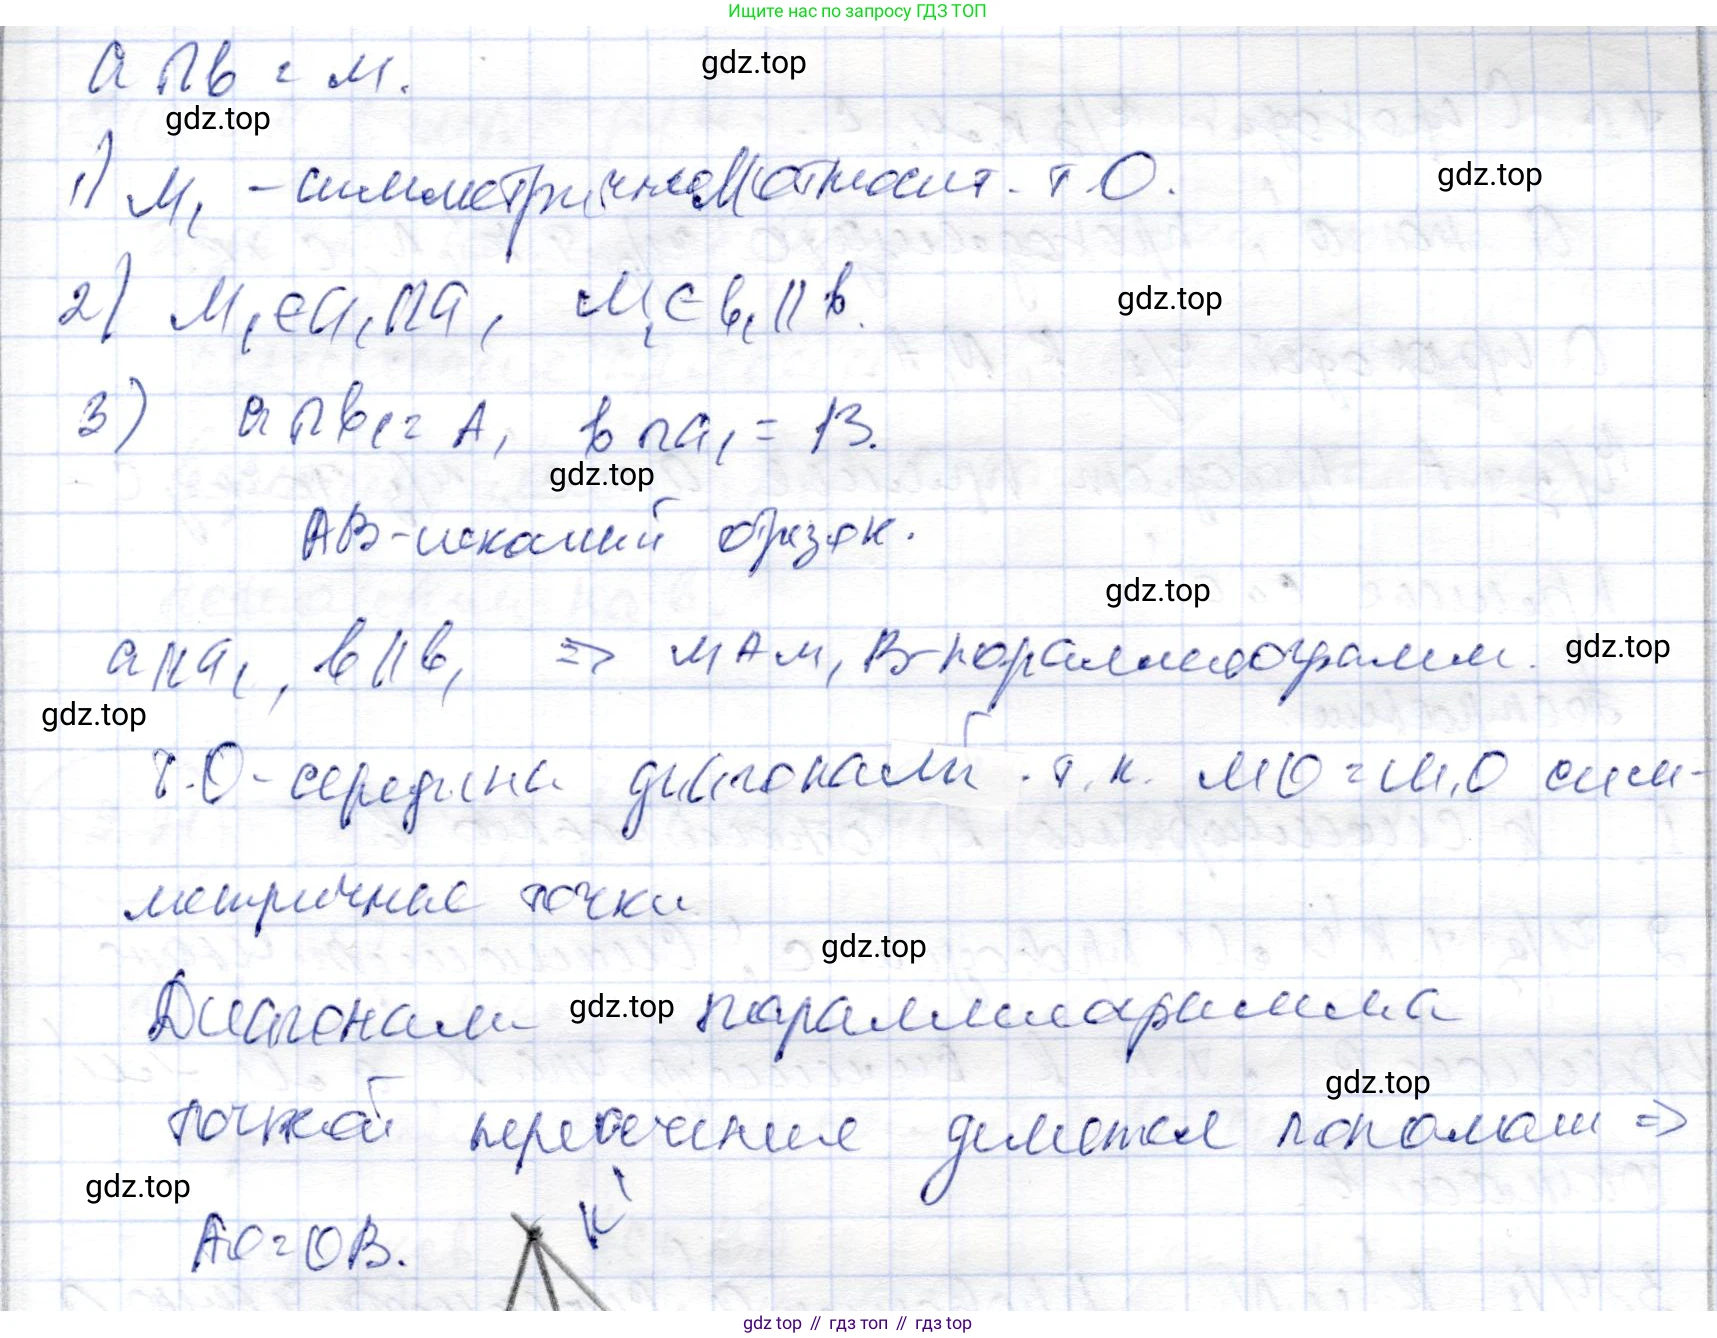 Ищите нас по запросу ГДЗ ТОП
a ∩ b = M.
gdz.top
gdz.top
1) M₁ - симметричнаM относит. т O.
gdz.top
2) M₁ ∈ a₁ ∥ a, M₁ ∈ b₁ ∥ b.
gdz.top
3) a ∩ b₁ = A, b ∩ a₁ = B.
gdz.top
AB - искомий отрезок.
gdz.top
a ∥ a₁, b ∥ b₁ => MAM₁B - параллелограмм.
gdz.top
gdz.top
т. O - середина диагоналий. т.к. MO = M₁O сим-
метричные точки
gdz.top
Диагонали параллелограмма
gdz.top
gdz.top
точкой пересечения делятся пополам =>
gdz.top
AO = OB.
K
gdz.top // гдз топ // гдз top